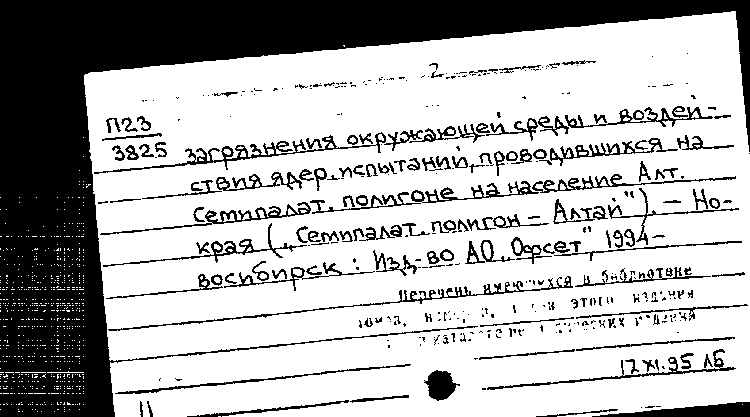 2
П23
3825 загрязнения окружающей среды и воздей-
ствия ядер. испытаний, проводившихся на
Семипалат. полигоне на население Алт.
края („Семипалат. полигон – Алтай"). – Но-
восибирск : Изд-во АО „Офсет", 1994 –
Перечень имеющихся в библиотеке
томов, этого издания
в каталоге изданий
12 XI.95 ЛБ
11